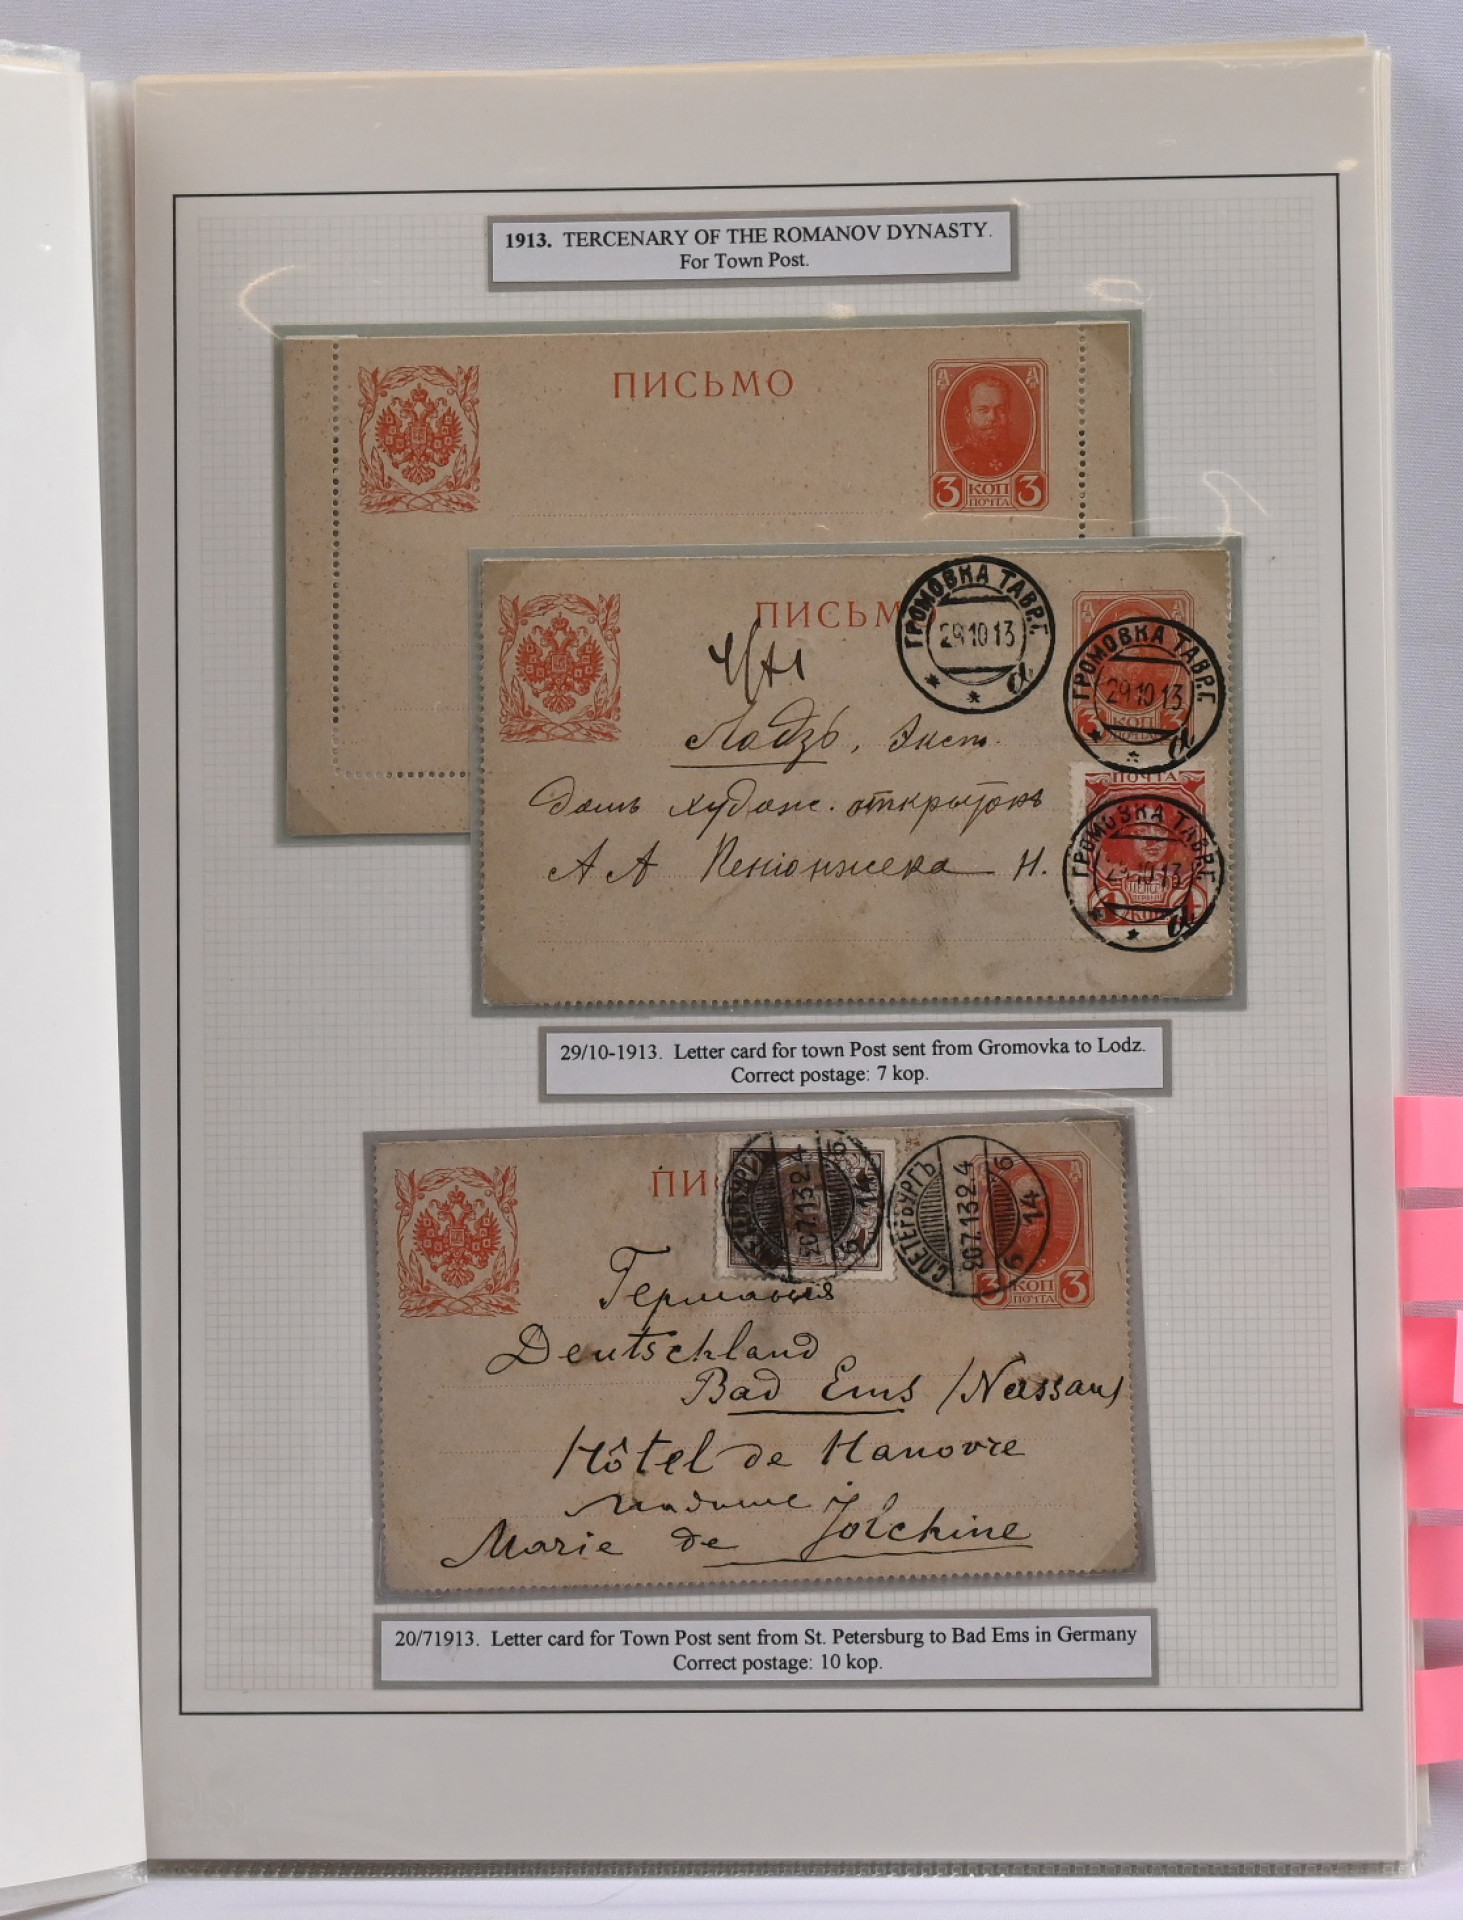 1913. TERCENARY OF THE ROMANOV DYNASTY.
For Town Post.
ПИСЬМО
3 КОП 3
ПОЧТА
ПИСЬМО
ГРОМОВКА ТАВР.Г.
29 10 13
а
ГРОМОВКА ТАВР.Г.
29 10 13
а
3 КОП 3
ПОЧТА
Лодзь, Эксп.
домъ худож. открытокъ
А А Пенюнжека Н.
ПОЧТА
ГРОМОВКА ТАВР.Г.
29 10 13
а
1 КОП 1
29/10-1913. Letter card for town Post sent from Gromovka to Lodz.
Correct postage: 7 kop.
ПИ
С.ПЕТЕРБУРГЪ
20.7.13 2.4
14
С.ПЕТЕРБУРГЪ
20.7.13 2.4
14
3 КОП 3
ПОЧТА
Германія
Deutschland
Bad Ems /Nassau/
Hôtel de Hanovre
Madame
Marie de
20/71913. Letter card for Town Post sent from St. Petersburg to Bad Ems in Germany
Correct postage: 10 kop.